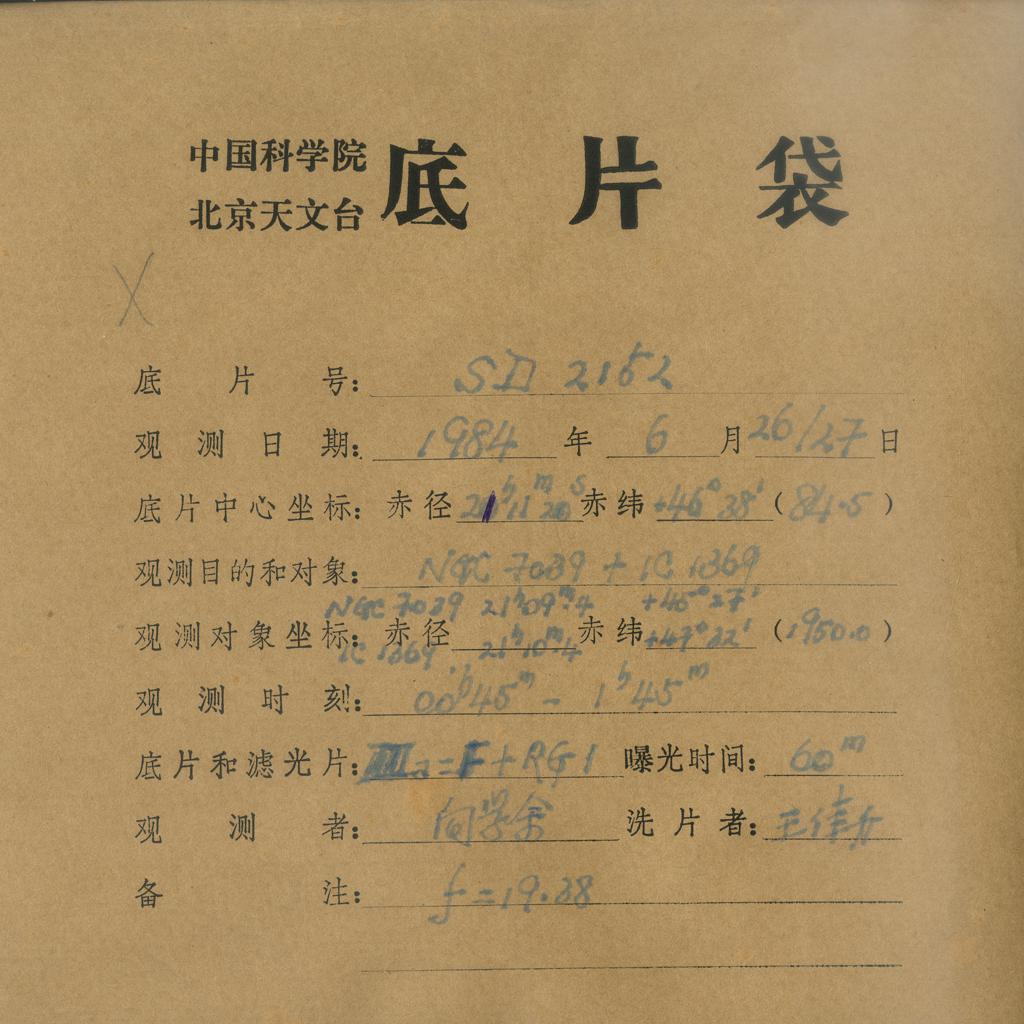 中国科学院
北京天文台 底片袋
X
底片号: SD 2152
观测日期: 1984 年 6 月 26/27 日
底片中心坐标: 赤径 21ʰ11ᵐ20ˢ 赤纬 +46°38′ (84.5)
观测目的和对象: NGC 7039 + IC 1369
NGC 7039 21ʰ09ᵐ.4 +45°27′
观测对象坐标: 赤径 21ʰ10ᵐ.4 赤纬 +47°32′ (1950.0)
IC 1369
观测时刻: 00ʰ45ᵐ - 1ʰ45ᵐ
底片和滤光片: IIIa-F + RG1 曝光时间: 60ᵐ
观测者: 洗片者:
备注: f = 19.38